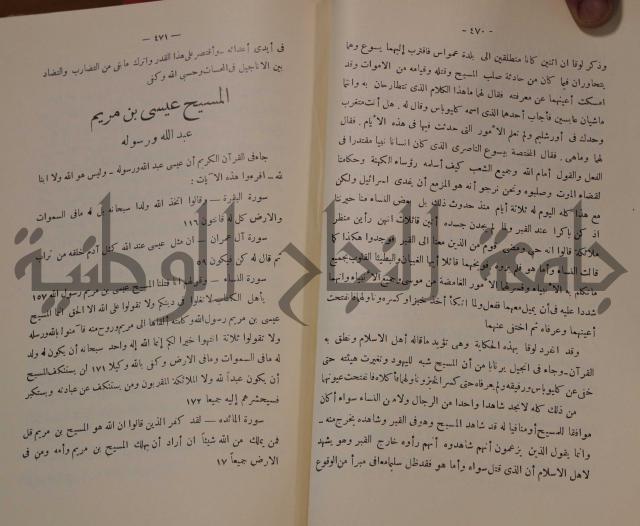 — ٤٧٠ —
وذكر لوقا ان اثنين كانا منطلقين الى بلدة عمواس فاقترب إليهما يسوع وهما
يتحاوران فيما كان من حادثة صلب المسيح وقتله وقيامه من الاموات وقد
امسكت أعينهما عن معرفته فقال لهما ماهذا الكلام الذى تتطارحان به وانتما
ماشيان عابسين فأجاب أحدهما الذى اسمه كليوباس وقال له . هل أنت متغرب
وحدك فى أورشليم ولم تعلم الأمور التى حدثت فيها فى هذه الأيام . فقال
لهما وماهى . فقال المختصة بيسوع الناصرى الذى كان انسانا نبيا مقتدرا فى
الفعل والقول أمام الله وجميع الشعب كيف أسلمه رؤساء الكهنة وحكامنا
لقضاء الموت وصلبوه ونحن نرجو أنه هو المزمع أن يفدى اسرائيل ولكن
مع هذا كله اليوم له ثلاثة أيام منذ حدوث ذلك بل بعض النساء منا حيرننا
اذ كن باكرا عند القبر ولما لم يجدن جسده أتين قائلات انهن رأين منظر
ملائكة قالوا انه حى ومضى قوم من الذين معنا الى القبر فوجدوا هكذا كما
قالت النساء وأما هو فلم يروه فوبخهما قائلا أيها الغبيان والبطيئا القلوب بجميع
ماتكلم به الأنبياء وفسر لهما الأمور الغامضة من موسى وجميع الأنبياء وانهما
شددا عليه فى أن يميل معهما ففعل ولما اتكأ أخذ خبزا وكسره وناولهما فانفتحت
أعينهما وعرفاه ثم اختفى عنهما
وقد انفرد لوقا بهذه الحكاية وهى تؤيد ماقاله أهل الاسلام ونطق به
القرآن ـ وجاء فى انجيل برنابا من أن المسيح شبه لليهود وتغيرت هيئته حتى
خفى عن كليوباس ورفيقه ولم يعرفاه حتى كسر الخبز وناولهما فأكلاه فانفتحت عيونهما
من ذلك كله لانجد شاهدا واحدا من الرجال ولا من النساء سواء أكان
موافقا للمسيح أو منافيا له قد شاهد المسيح وهو فى القبر وشاهده يخرج منه ـ
وانما يقول الذين يزعمون أنهم شاهدوه أنهم رأوه خارج القبر وهو يشهد
لاهل الاسلام أن الذى قتل سواه وأما هو فقد ظل سليما معافى مبرأ من الوقوع
— ٤٧١ —
فى أيدى أعدائه ـ وأقتصر على هذا القدر واترك مابقى من التضارب والتضاد
بين الاناجيل فى الحسنات وحسبى الله وكفى
المسيح عيسى بن مريم
عبد الله ورسوله
جاء فى القرآن الكريم أن عيسى عبد الله ورسوله ـ وليس هو الله ولا ابنا
لله ـ افرءوا هذه الآيات :
سورة البقرة ـ وقالوا اتخذ الله ولدا سبحانه بل له مافى السموات
والارض كل له قانتون ١١٦
سورة آل عمران ـ ان مثل عيسى عند الله كمثل آدم خلقه من تراب
ثم قال له كن فيكون ٥٩
سورة النساء ـ وقولهم انا قتلنا المسيح عيسى بن مريم رسول الله ١٥٧
يأهل الكتاب لا تغلوا فى دينكم ولا تقولوا على الله الا الحق انما المسيح
عيسى بن مريم رسول الله وكلمته ألقاها الى مريم وروح منه فآمنوا بالله ورسله
ولا تقولوا ثلاثة انتهوا خيرا لكم إنما الله إله واحد سبحانه أن يكون له ولد
له مافى السموات ومافى الارض وكفى بالله وكيلا ١٧١ لن يستنكف المسيح
أن يكون عبدا لله ولا الملائكة المقربون ومن يستنكف عن عبادته ويستكبر
فسيحشرهم إليه جميعا ١٧٢
سورة المائده ـ لقد كفر الذين قالوا ان الله هو المسيح بن مريم قل
فمن يملك من الله شيئا ان أراد أن يهلك المسيح بن مريم وأمه ومن فى
الارض جميعا ١٧
جامعة النجاح الوطنية